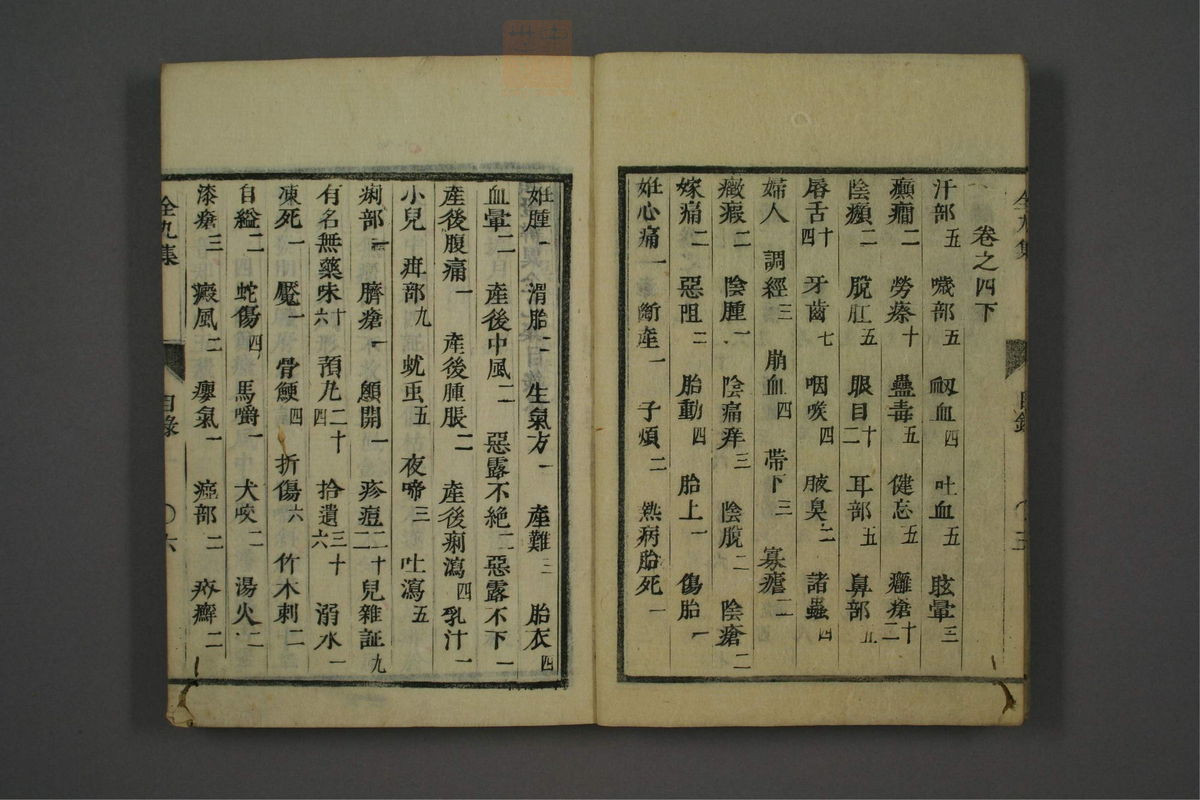 卷之四下
汗部五 噦部五 衂血四 吐血五 眩暈三
癲癇二 勞瘵十 蠱毒五 健忘五 癰瘡十二
陰癩二 脫肛五 眼目十二 耳部五 鼻部五
唇舌十四 牙齒七 咽喉四 腋臭二 諸蟲四
婦人 調經三 崩血四 帶下三 寡瘧二
癥瘕二 陰腫一 陰痛痒三 陰脫二 陰瘡二
嫁痛二 惡阻二 胎動四 胎上一 傷胎一
妊心痛一 斷產一 子煩二 熱病胎死一
妊腫一 滑胎二 生氣方一 產難三 胎衣四
血暈二 產後中風二 惡露不絶二 惡露不下一
產後腹痛一 產後腫脹二 產後痢瀉四 乳汁一
小兒 疳部九 蚘虫五 夜啼三 吐瀉五
痢部三 臍瘡一 顖開一 疹痘二十二 兒雜証九
有名無藥味十六 預九二十四 拾遺三十六 溺水一
凍死一 魘一 骨鯁四 折傷六 竹木刺二
自縊二 蛇傷四 馬嚼一 犬咬二 湯火二
漆瘡三 癜風二 癭氣一 痃部二 疥癬二
全九集 目錄 六